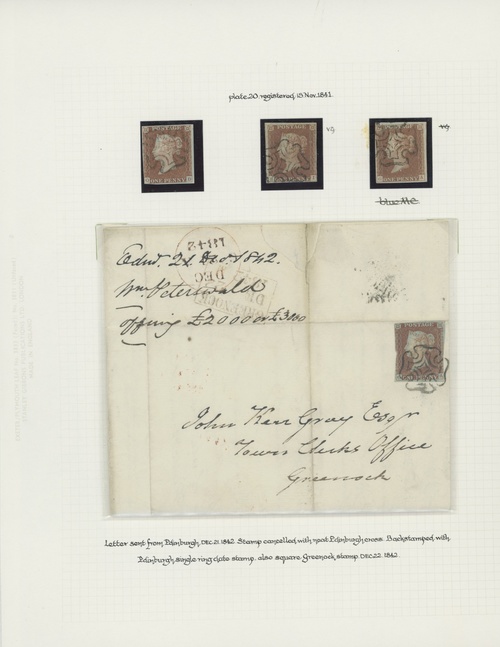 plate 20 registered 15 Nov. 1841.
POSTAGE
ONE PENNY
POSTAGE
ONE PENNY
POSTAGE
ONE PENNY
blue MC
Edinr. 21. Decr. 1842.
Wm Peterswald
offering £2000 or £3000
DEC
1842
GREENOCK
John Kerr Gray Esqr
Town Clerks Office
Greenock
Letter sent from Edinburgh, DEC. 21. 1842. Stamp cancelled with neat Edinburgh cross. Backstamped, with
Edinburgh, single ring date stamp. also square Greenock, stamp. DEC. 22. 1842.